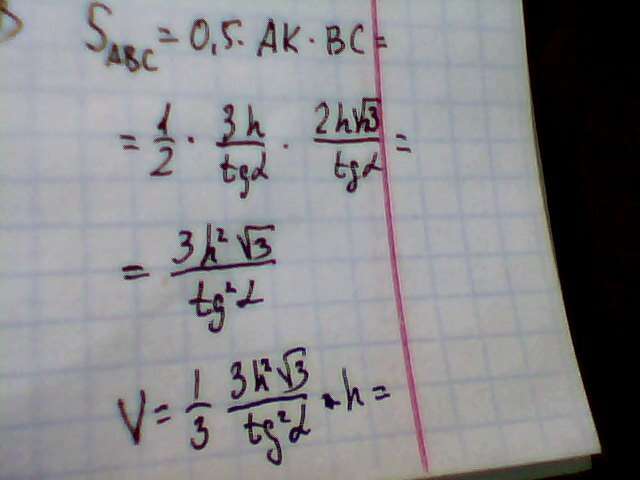 S_ABC = 0,5 · AK · BC =
= 1/2 · 3h/tgα · 2h√3/tgα =
= 3h²√3/tg²α
V = 1/3 3h²√3/tg²α · h =